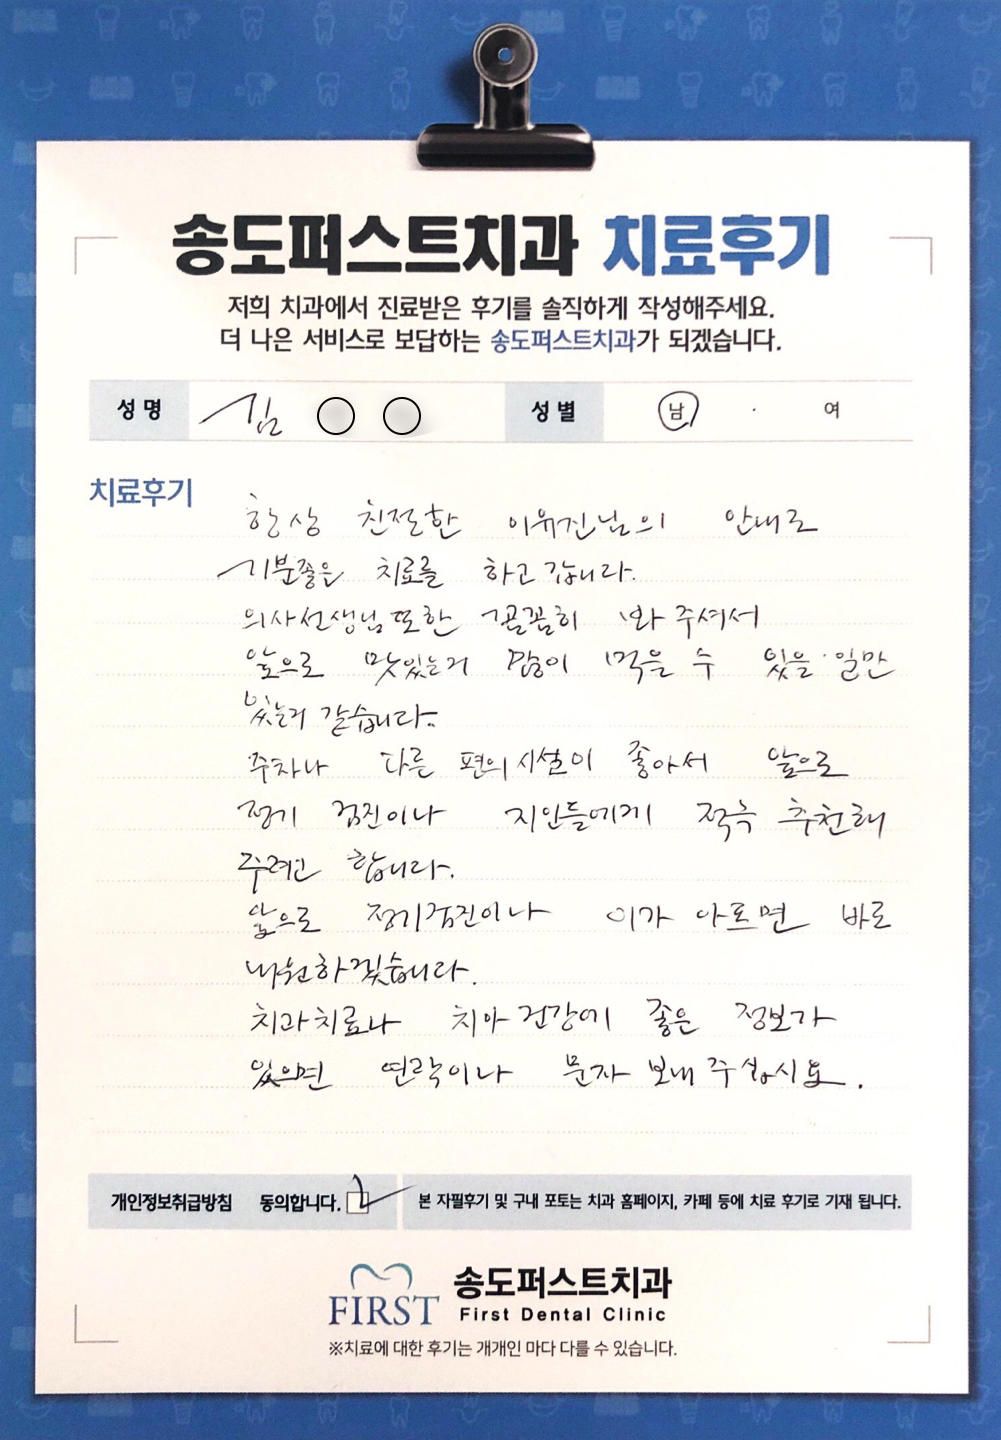 송도퍼스트치과 치료후기
저희 치과에서 진료받은 후기를 솔직하게 작성해주세요.
더 나은 서비스로 보답하는 송도퍼스트치과가 되겠습니다.
성명 김 ○ ○ 성별 남 · 여
치료후기
항상 친절한 이유진님의 안내로
기분좋은 치료를 하고 갑니다.
의사선생님 또한 꼼꼼히 봐 주셔서
앞으로 맛있는거 많이 먹을 수 있을 일만
있는거 같습니다.
주차나 다른 편의시설이 좋아서 앞으로
정기 검진이나 지인들에게 적극 추천해
주려고 합니다.
앞으로 정기검진이나 이가 아프면 바로
내원하겠습니다.
치과치료나 치아 건강에 좋은 정보가
있으면 연락이나 문자 보내 주십시요.
개인정보취급방침 동의합니다. 본 자필후기 및 구내 포토는 치과 홈페이지, 카페 등에 치료 후기로 기재 됩니다.
FIRST 송도퍼스트치과
First Dental Clinic
※치료에 대한 후기는 개개인 마다 다를 수 있습니다.